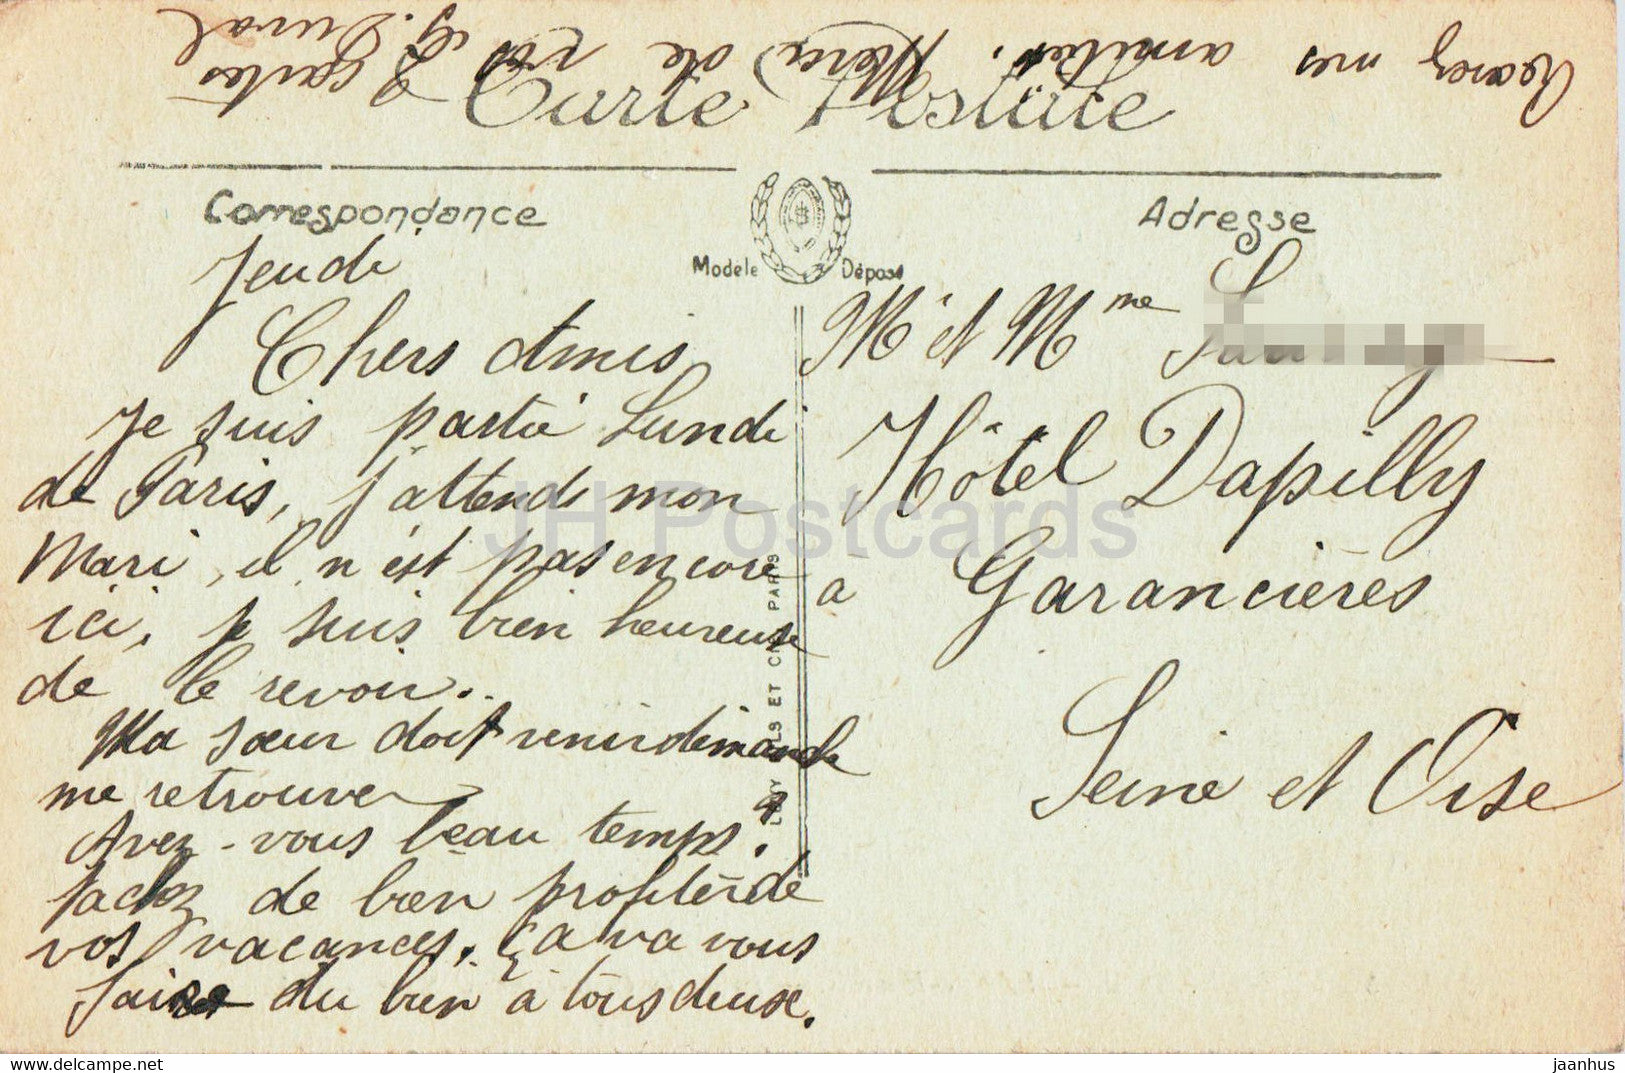 Recevez mes amitiés. Merci de vos
2 cartes G. Duval
Carte Postale
Correspondance
Adresse
Modèle Déposé
Jeudi
Chers Amis
Je suis partie Lundi
de Paris, j'attends mon
Mari, il n'est pas encore
ici, je suis bien heureuse
de le revoir..
Ma sœur doit venir dimanche
me retrouver
Avez-vous beau temps ?
tachez de bien profiter de
vos vacances. Ça va vous
faire du bien à tous deux.
Mr et Mme
Hôtel Dapilly
à Garancières
Seine et Oise
LEVY FILS ET CIE PARIS
JH Postcards
delcampe.net
jaanhus